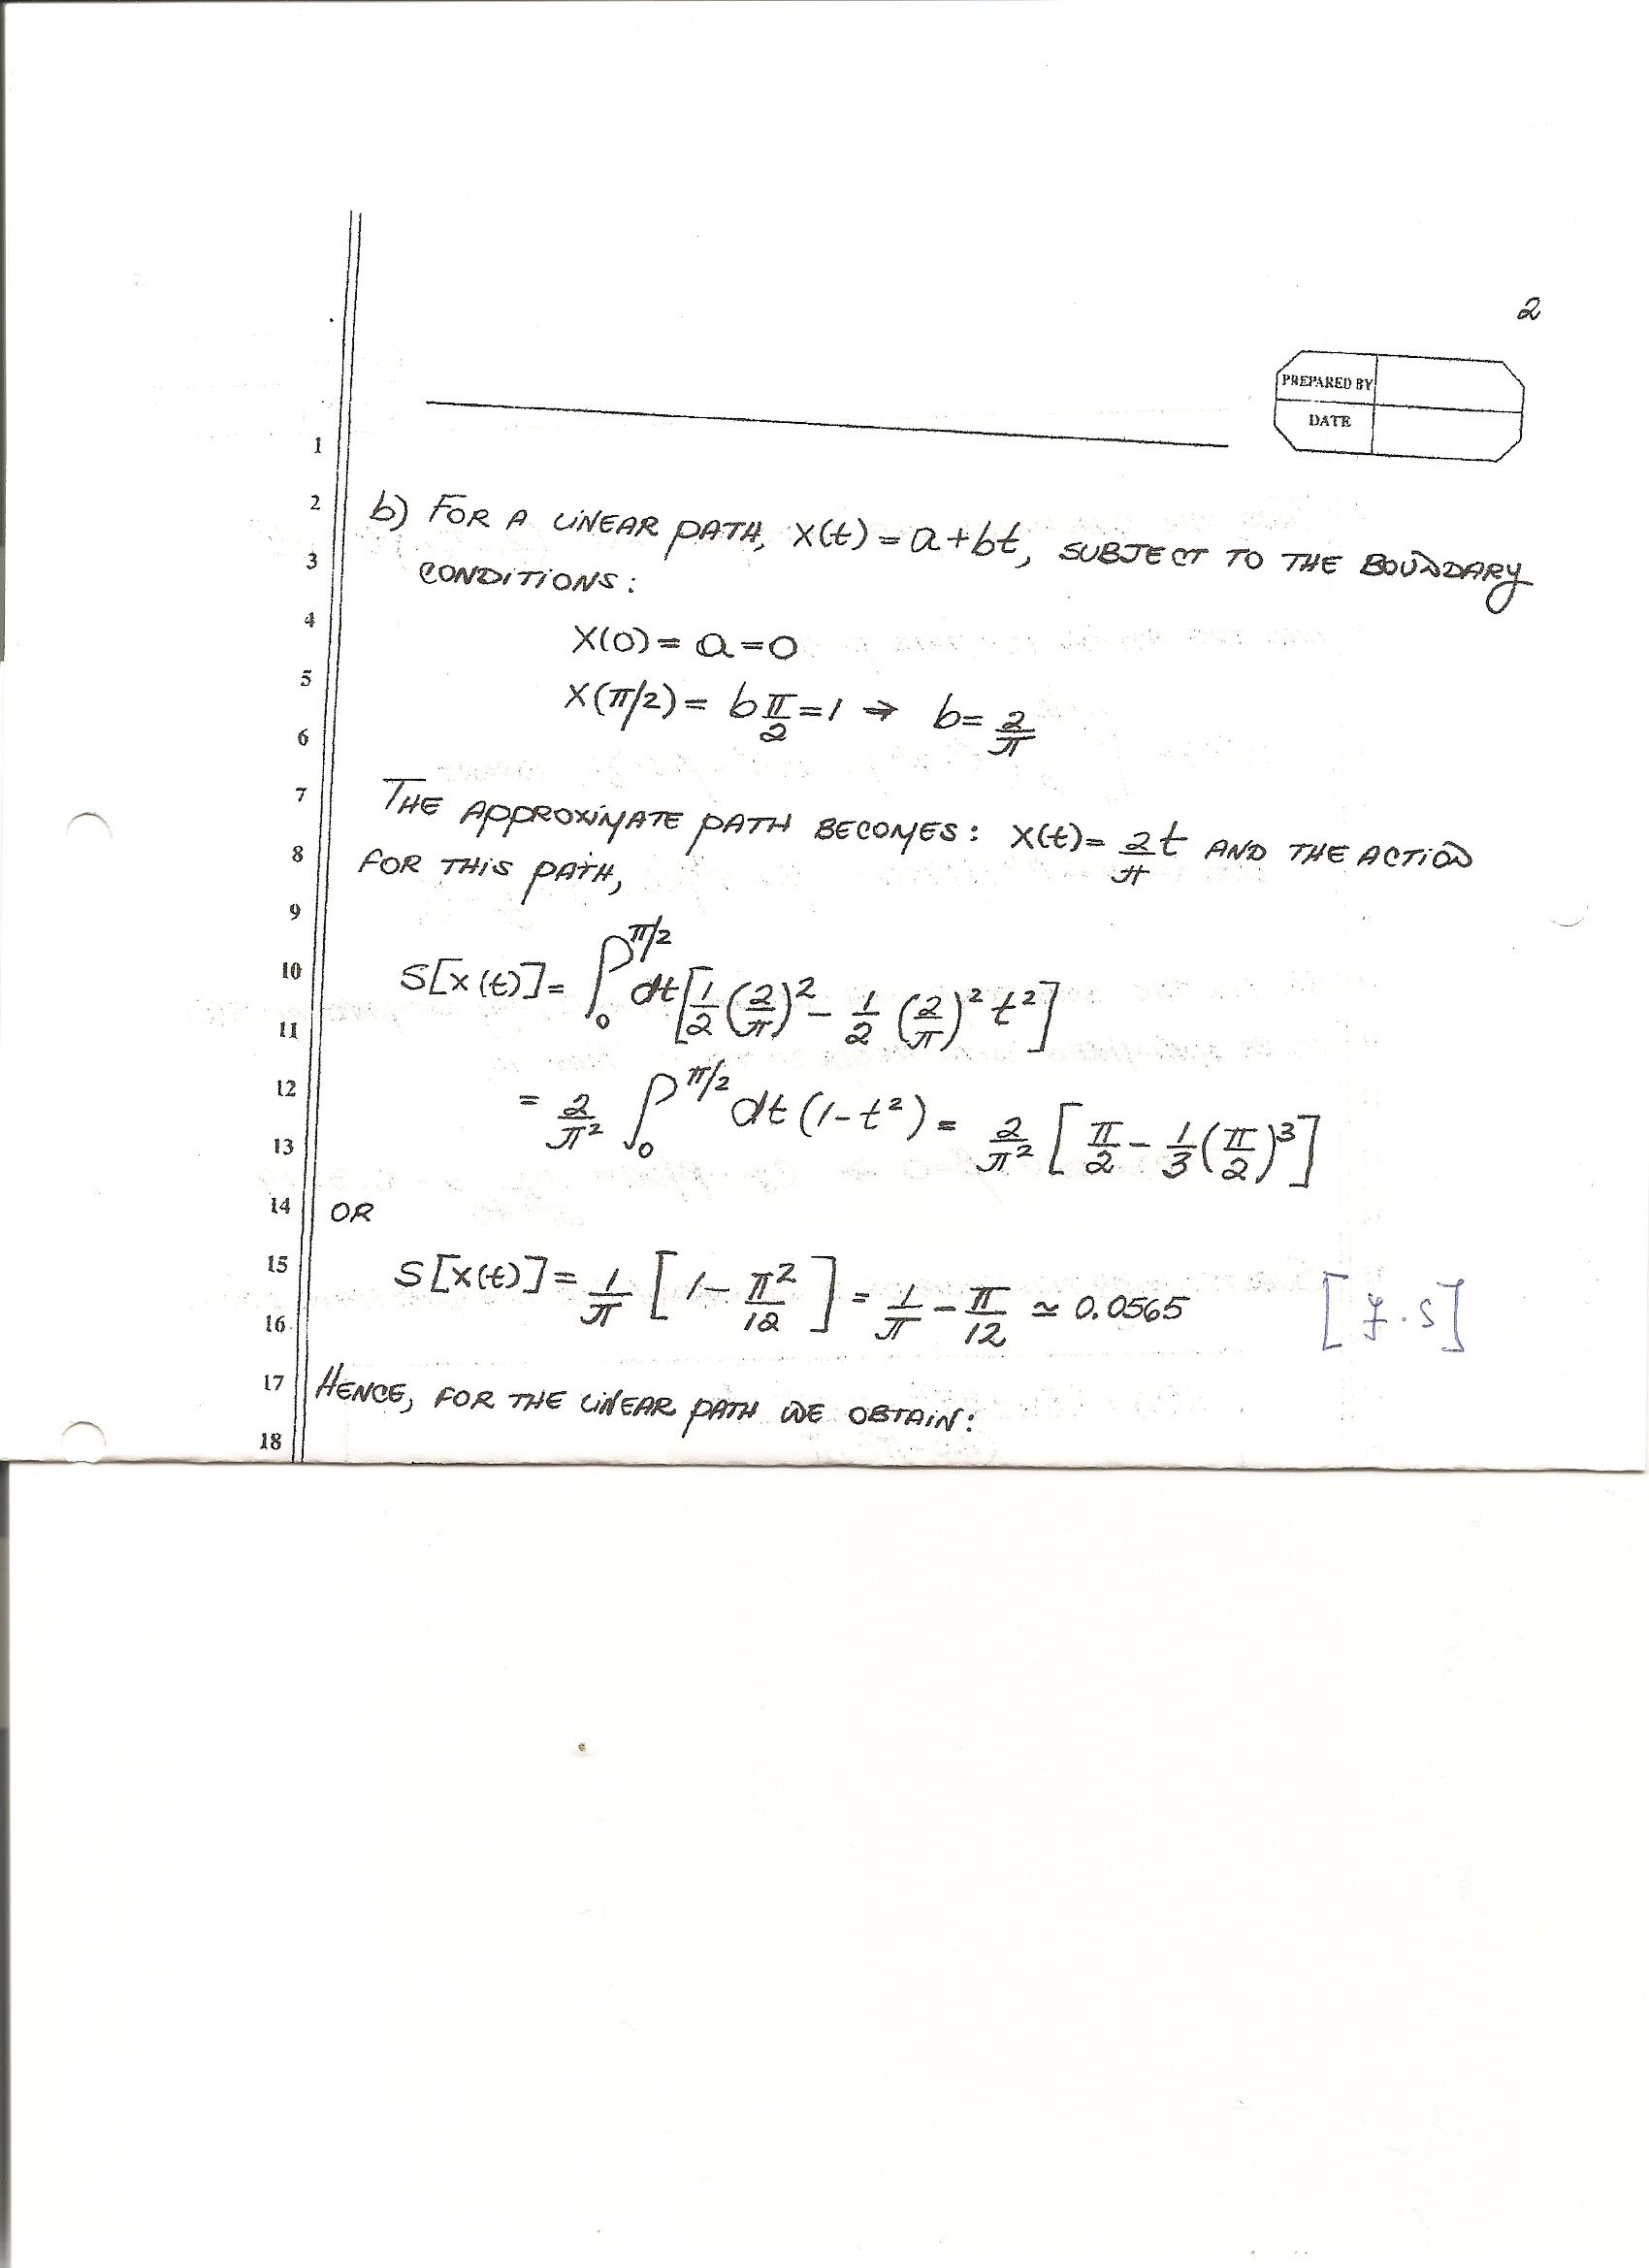 2
PREPARED BY
DATE
1
2 b) FOR A LINEAR PATH, X(t) = a+bt, SUBJECT TO THE BOUNDARY
3 CONDITIONS:
4 X(0) = a = 0
5 X(π/2) = b π/2 = 1 → b = 2/π
6
7 THE APPROXIMATE PATH BECOMES: X(t) = 2/π t AND THE ACTION
8 FOR THIS PATH,
9
10 S[x(t)] = ∫₀^π/2 dt[1/2 (2/π)² - 1/2 (2/π)² t²]
11
12 = 2/π² ∫₀^π/2 dt (1-t²) = 2/π² [π/2 - 1/3 (π/2)³]
13
14 OR
15 S[X(t)] = 1/π [1 - π²/12] = 1/π - π/12 ≃ 0.0565
16
17 HENCE, FOR THE LINEAR PATH WE OBTAIN:
18